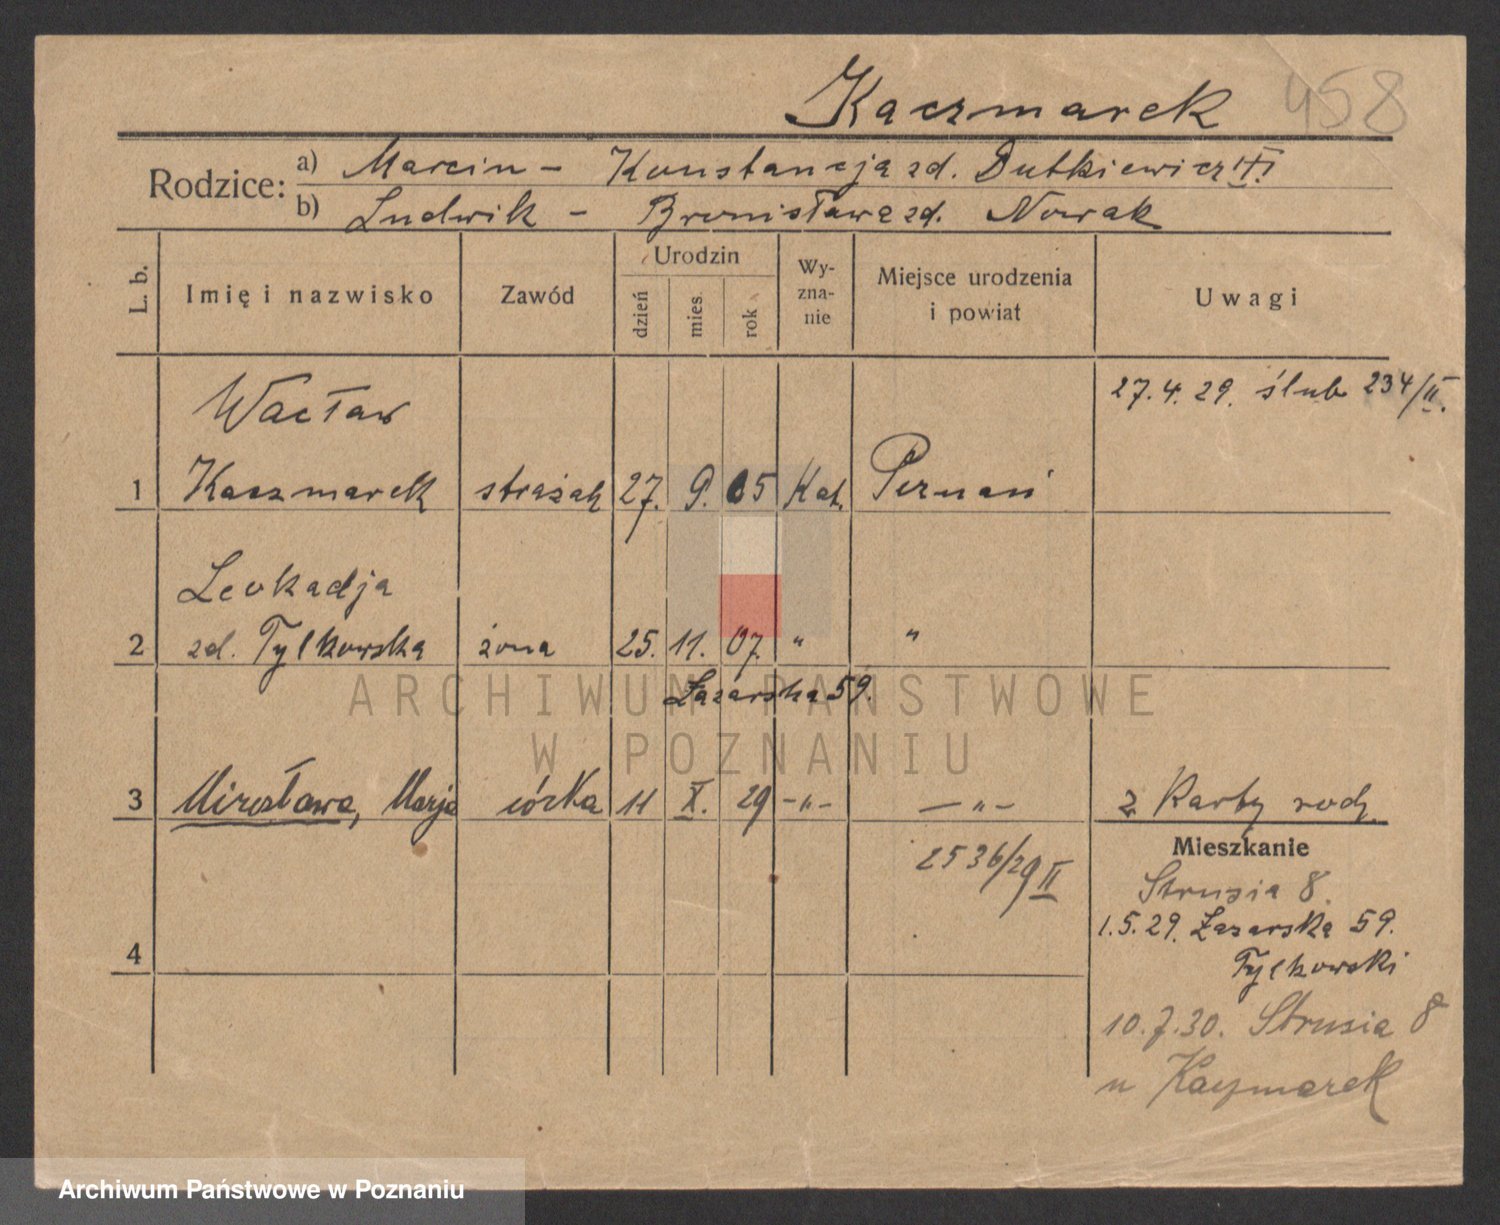 Kaczmarek 458
Rodzice: a) Marcin - Konstancja zd. Dutkiewicz VI.
b) Ludwik - Bronisława zd. Nowak
L. b. Imię i nazwisko Zawód Urodzin dzień mies. rok Wy-zna-nie Miejsce urodzenia i powiat Uwagi
27. 4. 29. ślub 234/II.
Wacław
1 Kaczmarek strażak 27. 9. 05 Kat. Poznań
Leokadja
2 zd. Tylkowska żona 25. 11. 07. " "
Łazarska 59.
ARCHIWUM PAŃSTWOWE
W POZNANIU
3 Mirosława, Marja córka 11 X. 29 -"- -"- z Karty rodz.
2536/29 II
Mieszkanie
Strusia 8.
1.5.29. Łazarska 59.
4 Tylkowski
10.7.30. Strusia 8
u Kaczmarek
Archiwum Państwowe w Poznaniu